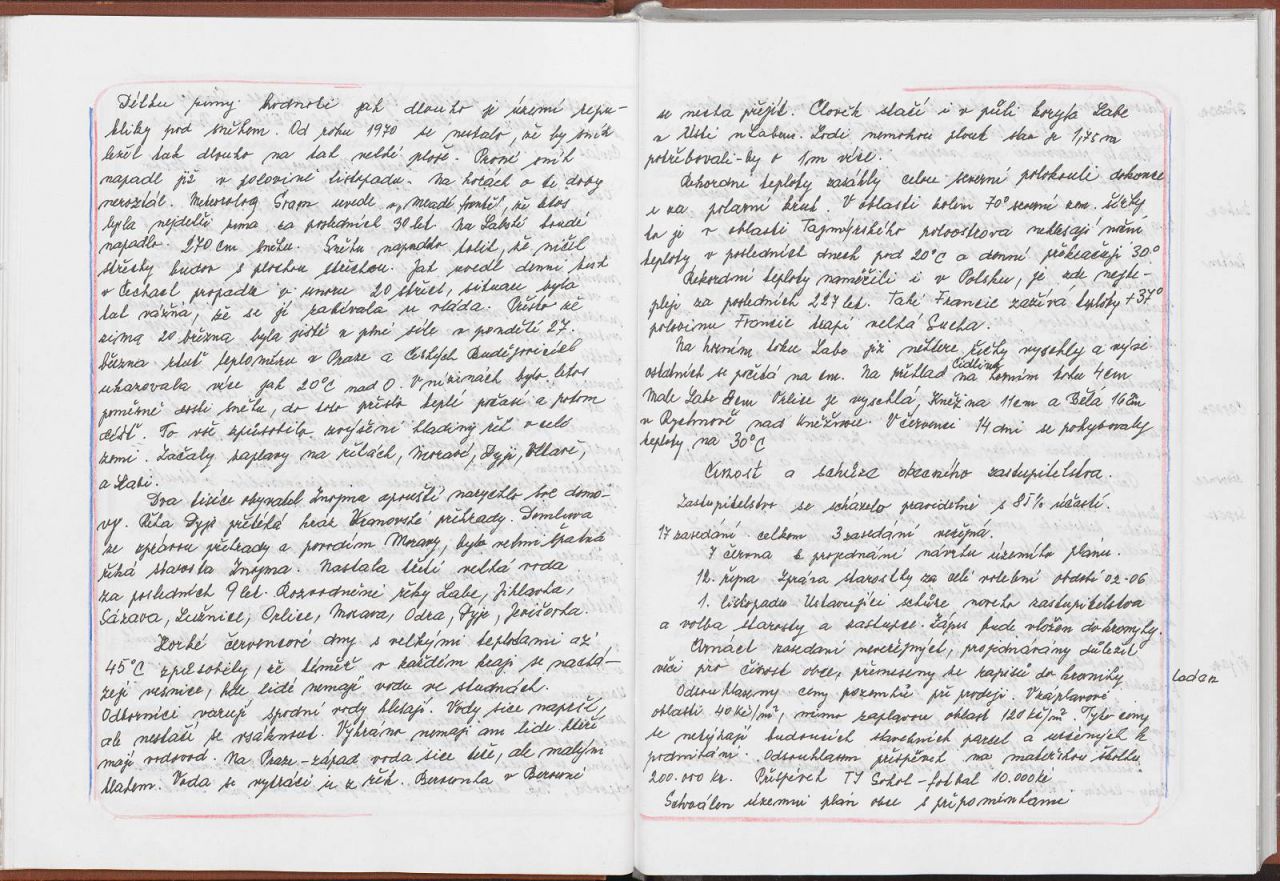 Délku zimy hodnotí jak dlouho je území repu-
bliky pod sněhem. Od roku 1970 se nestalo, že by sníh
ležel tak dlouho na tak velké ploše. První sníh
napadl již v polovině listopadu. Na horách o té doby
neroztál. Meteorolog Šram uvedl v „Mladé frontě", že letos
byla nejdelší zima za posledních 30 let. Na Labské boudě
napadlo 270 cm sněhu. Sněhu napadlo tolik, že ničil
střechy budov s plochou střechou. Jak uvedl denní tisk
v Čechách propadlo v únoru 20 střech, situace byla
tak vážná, že se jí zabývala i vláda. Přesto že
zima 20 března byla ještě v plné síle v pondělí 27.
března rtuť teploměru v Praze a Českých Budějovicích
ukazovala více jak 20°C nad 0. V nížinách bylo letos
poměrně dosti sněhu, do toho přišlo teplé počasí a potom
déšť. To vše způsobilo zvýšení hladiny řek v celé
zemi. Začaly záplavy na řekách, Moravě, Dyji, Vltavě,
a Labi.
Dva tisíce obyvatel Znojma opouští narychlo své domo-
vy. Řeka Dyje přetéká hráz Vranovské přehrady. Domluva
se správou přehrady a povodím Moravy, byla velmi špatná
říká starosta Znojma. Nastala třetí velká voda
za posledních 9 let. Rozvodněné řeky Labe, Jihlavka,
Sázava, Lužnice, Orlice, Morava, Odra, Dyje, Jevišovka.
Horké červencové dny s velkými teplotami až
45°C způsobily, že téměř v každém kraji se nachá-
zejí vesnice, kde lidé nemají vodu ve studnách.
Odborníci varují spodní vody klesají. Vody sice naprší,
ale nestačí se vsáknout. Vyhráno nemají ani lidé kteří
mají vodovod. Na Praze-západ voda sice teče, ale malým
tlakem. Voda se vytrácí i z řek. Berounka v Berouně
se nechá přejít. Člověk stačí i v půli koryta Labe
v Ústí n Labem. Lodě nemohou plout stav je 1,75 m
potřebovali-by o 1m více.
Rekordní teploty zasáhly celou severní polokouli dokonce
i za polární kruh. V oblasti kolem 70° severní zem. šířky
to je v oblasti Tajmyrského poloostrova neklesají noční
teploty v posledních dnech pod 20°C a denní překračují 30°
Rekordní teploty naměřili i v Polsku, je zde nejte-
pleji za posledních 227 let. Také Francie zažívá teploty +37°
polovinu Francie trápí velká sucha.
Na horním toku Labe již některé říčky vyschly a výše
ostatních se počítá na cm. Na příklad na Cidlina horním toku 4cm
Malé Labe 8cm Orlice je vyschlá, Kněžna 11cm a Bělá 16cm
v Rychnově nad Kněžnou. V červenci 14 dní se pohybovaly
teploty na 30°C
Činost a schůze obecního zastupitelstva.
Zastupitelstvo se scházelo pravidelně s 85% účastí.
17 zasedání celkem 3 zasedání veřejná.
7 června k projednání návrhu územího plánu.
12. října Zpráva starostky za celé volební období 02-06
1. listopadu Ustavující schůze nového zastupitelstva
a volba starosty a zástupce. Zápis bude vložen do kroniky.
Čtrnáct zasedání neveřejných, projednávány důležité
věci pro činost obce, přineseny ze zápisů do kroniky
Odsouhlaseny ceny pozemků při prodeji. V záplavové
oblasti 40 kč/m², mimo záplavovou oblast 120 kč/m². Tyto ceny
se netýkají budoucích stavebních parcel a určených k
podnikání. Odsouhlasen příspěvek na mateřskou školku
200.000 kč. Příspěvek TJ Sokol-fotbal 10.000 kč
Schválen územní plán obce s připomínkami